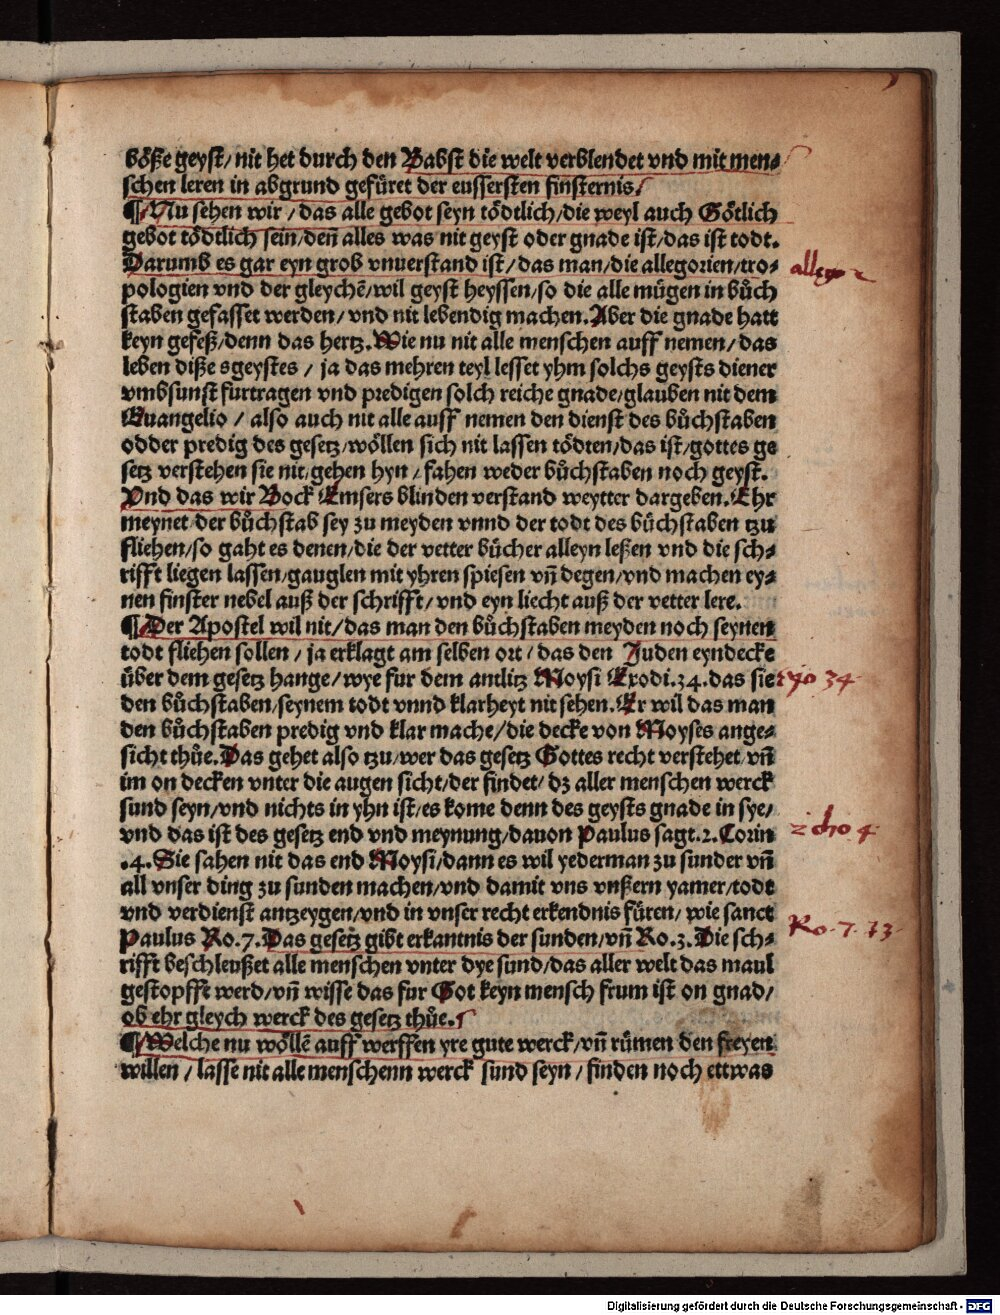 böße geyst/ nit het durch den Babst die welt verblendet vnd mit men⸗
schen leren in abgrund gefüret der eussersten finsternis.
¶ Nu sehen wir / das alle gebot seyn tödtlich/die weyl auch Götlich
gebot tödtlich sein/deñ alles was nit geyst oder gnade ist/das ist todt.
Darumb es gar eyn grob vnuerstand ist/ das man/die allegorien/tro⸗
pologien vnd der gleychē/wil geyst heyssen/so die alle mügen in bůch
staben gefasset werden/ vnd nit lebendig machen. Aber die gnade hatt
keyn gefeß/denn das hertz. Wie nu nit alle menschen auff nemen/ das
leben diße sgeystes / ja das mehren teyl lesset yhm solchs geysts diener
vmbsunst furtragen vnd predigen solch reiche gnade/glauben nit dem
Euangelio / also auch nit alle auff nemen den dienst des bůchstaben
odder predig des gesetz/wöllen sich nit lassen tödten/das ist/gottes ge
setz verstehen sie nit/gehen hyn / fahen weder bůchstaben noch geyst.
Vnd das wir Bock Emsers blinden verstand weytter dargeben. Ehr
meynet/der bůchstab sey zu meyden vnnd der todt des bůchstaben tzu
fliehen/so gaht es denen/die der vetter bücher alleyn leßen vnd die sch⸗
rifft liegen lassen/gauglen mit yhren spiesen vñ degen/vnd machen ey⸗
nen finster nebel auß der schrifft/ vnd eyn liecht auß der vetter lere.
¶ Der Apostel wil nit/das man den bůchstaben meyden noch seynen
todt fliehen sollen / ja erklagt am selben ort / das den Juden eyndecke
über dem gesetz hange/ wye fur dem antlitz Moysi Exodi.34.das sie
den bůchstaben/seynem todt vnnd klarheyt nit sehen. Er wil das man
den bůchstaben predig vnd klar mache/die decke von Moyses ange⸗
sicht thůe. Das gehet also tzu/wer das gesetz Gottes recht verstehet/vñ
im on decken vnter die augen sicht/der findet/ dz aller menschen werck
sund seyn/vnd nichts in yhn ist/es kome denn des geysts gnade in sye/
vnd das ist des gesetz end vnd meynung/dauon Paulus sagt.2.Corin
.4. Sie sahen nit das end Moysi/dann es wil yederman zu sunder vñ
all vnser ding zu sunden machen/vnd damit vns vnßern yamer/todt
vnd verdienst antzeygen/vnd in vnser recht erkendnis füren/ wie sanct
Paulus Ro.7. Das gesetz gibt erkantnis der sunden/vñ Ro.3. Die sch⸗
rifft beschleußet alle menschen vnter dye sund/das aller welt das maul
gestopfft werd/vñ wisse das fur Got keyn mensch frum ist on gnad/
ob ehr gleych werck des gesetz thůe.
¶ Welche nu wöllē auff werffen yre gute werck/vñ rümen den freyen
willen / lasse nit alle menschenn werck sund seyn / finden noch ettwas
exo 34
2 cho 4
Ro. 7. 13
Digitalisierung gefördert durch die Deutsche Forschungsgemeinschaft - DFG